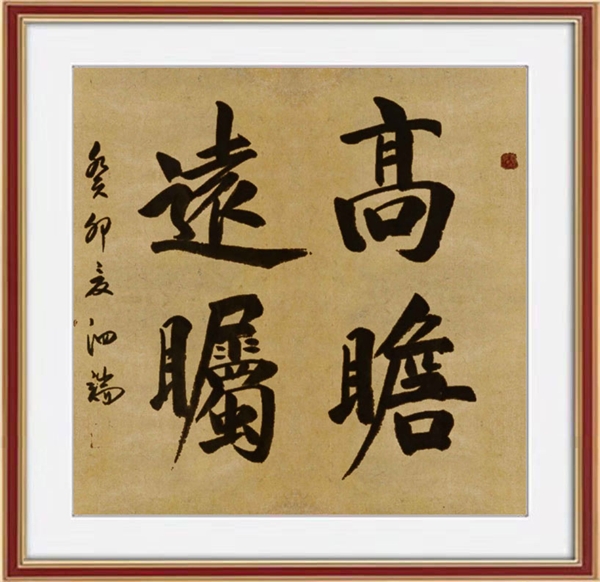 高瞻
遠矚
癸卯夏泗瑞